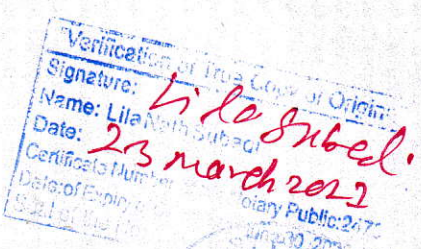 Verification of True Copy of Origin
Signature: Lila Subedi.
Name: Lila Nath Subedi
Date: 23 march 2022
Certificate Number Notary Public: 247
Date of Expiry
Seal of the